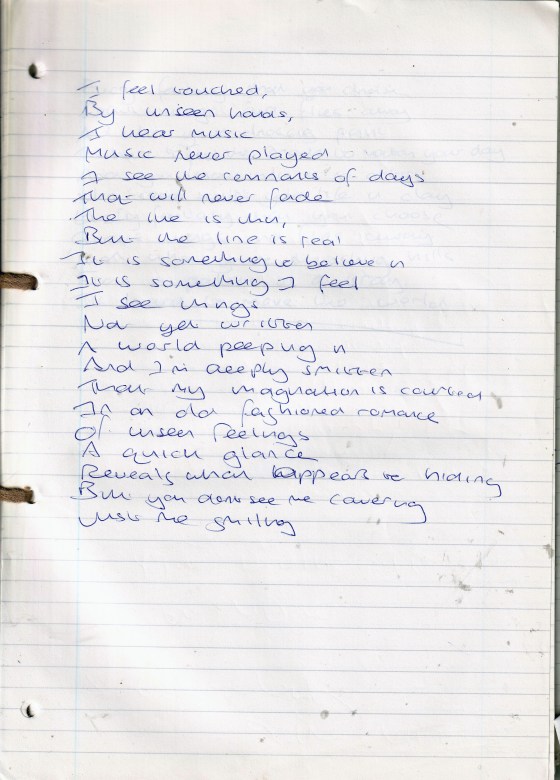 I feel touched,
By unseen hands,
I hear music
Music never played
I see the remnants of days
That will never fade
The line is thin,
But the line is real
It is something to believe in
It is something I feel
I see things
Not yet written
A world peeping in
And I'm deeply smitten
That my imagination is courted
In an old fashioned romance
Of unseen feelings
A quick glance
Reveals what appears to hiding
But you dont see me covering
Just me smiling